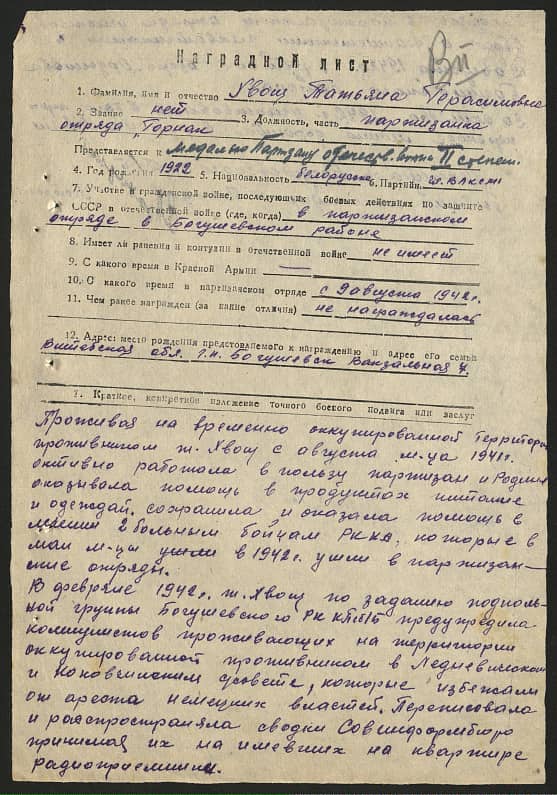 Наградной лист
1. Фамилия, имя и отчество Хвощ Татьяна Герасимовна
2. Звание нет 3. Должность, часть партизанка
отряда "Горнак"
Представляется к медалью Партзану отечесв. войны II степен.
4. Год рождения 1922 5. Национальность белоруска 6. Партийн. чл. ВЛКСМ
7. Участие в гражданской войне, последующих боевых действиях по защите
СССР в отечественной войне (где, когда) в партизанском
отряде в Богушевском районе
8. Имеет ли ранения и контузии в отечественной войне не имеет
9. С какого время в Красной Армии —
10. С какого время в партизанском отряде с 9 августа 1942 г.
11. Чем ранее награжден (за какие отличия) не награждалась
12. Адрес: место рождения представляемого к награждению и адрес его семьи
Витебская обл. г.п. Богушевск Вакзальная 4.
1. Краткое, конкретное изложение точного боевого подвига или заслуг
Проживая на временно оккупированной территории
противником т. Хвощ с августа м-ца 1941 г.
активно работала в пользу партизан и Родины
оказывала помощь в продуктах питание
и одеждай. сохранила и оказала помощь в
лечении 2 больным бойцам РККА, которые в
маи м-цы ушли в 1942 г. ушли в партизан-
ские отряды.
В феврале 1942 г. т. Хвощ по заданию подполь-
ной группы Богушевского РК КП(б)Б предупредила
коммунистов проживающих на территории
оккупированной противником в Ледневичском
и Коковчинском с/совете, которые избежали
от ареста немецких властей. Переписовала
и распространяла сводки Совинформбюро
принимая их на имевших на квартире
радиоприемники.